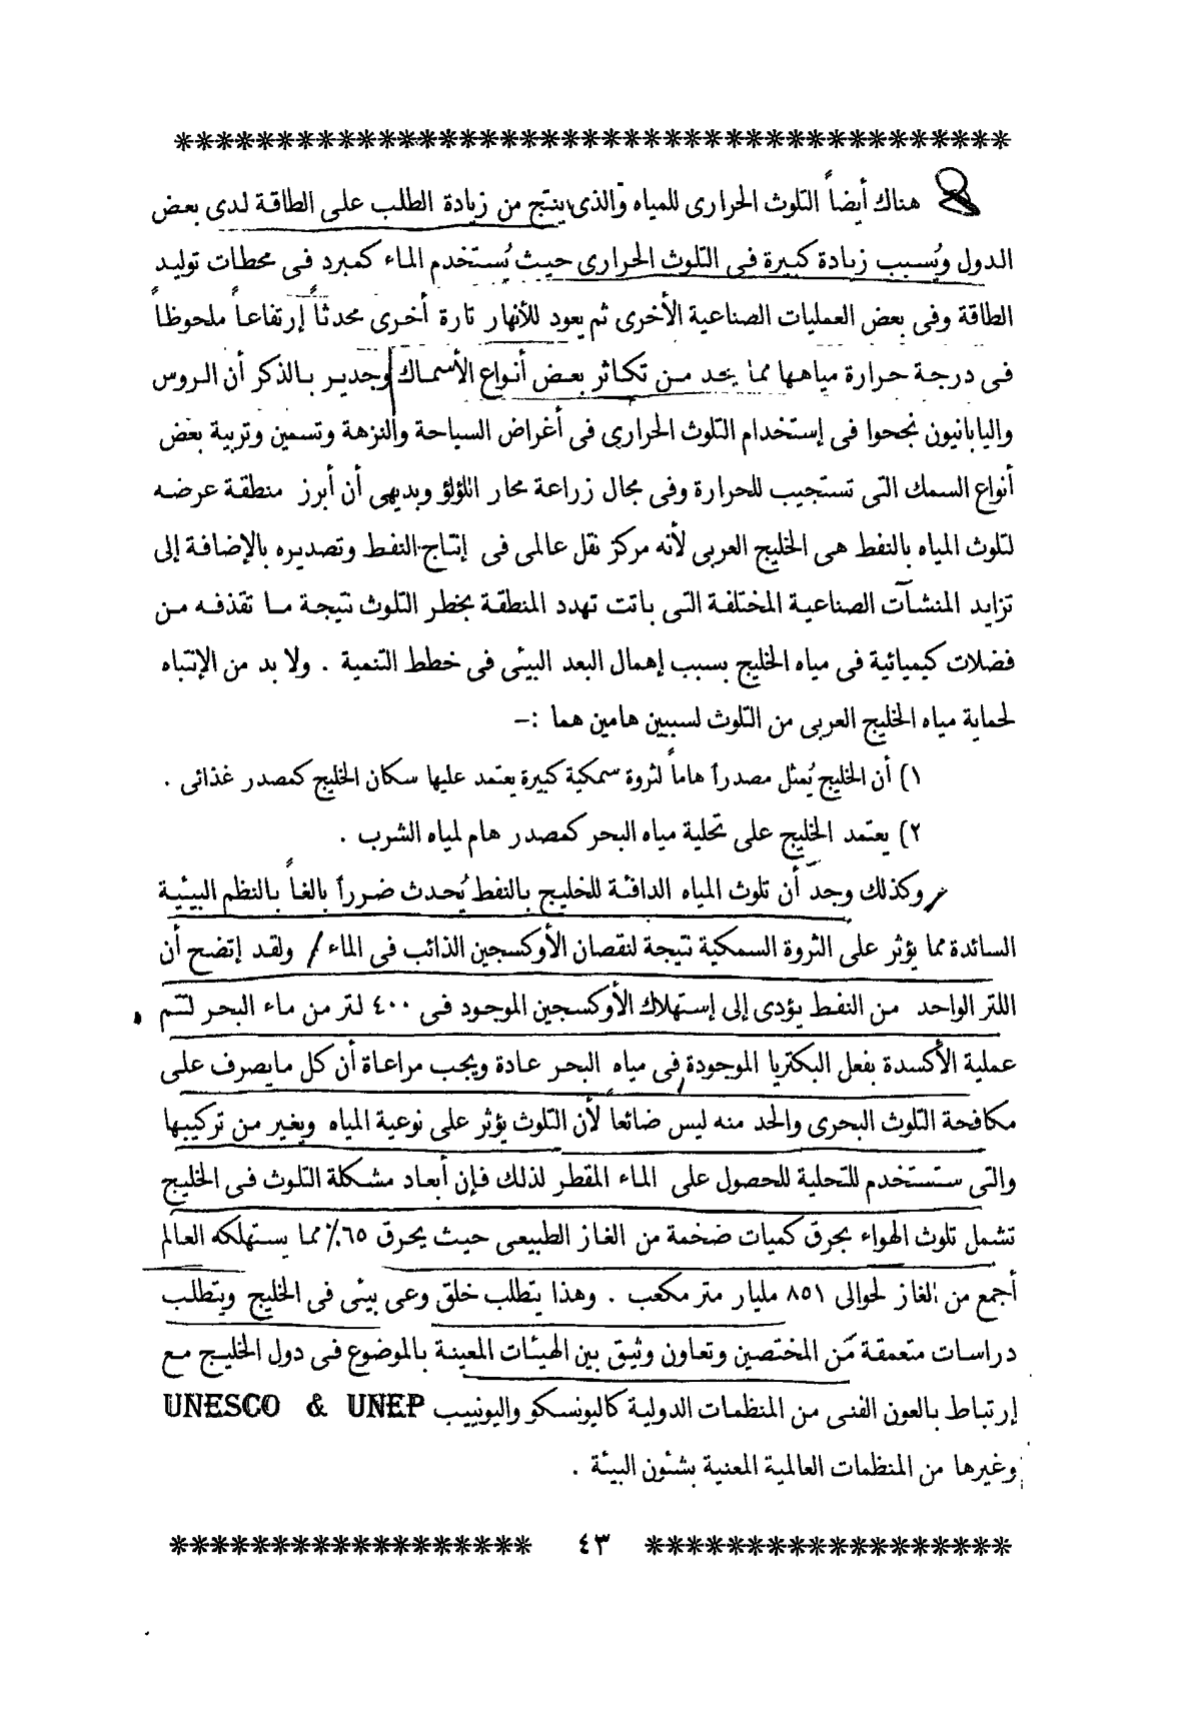 هناك أيضاً التلوث الحرارى للمياه والذى ينتج من زيادة الطلب على الطاقة لدى بعض
الدول ويُسبب زيادة كبيرة فى التلوث الحرارى حيث يُستخدم الماء كمبرد فى محطات توليد
الطاقة وفى بعض العمليات الصناعية الأخرى ثم يعود للأنهار تارة أخرى محدثاً إرتفاعاً ملحوظاً
فى درجة حرارة مياهها مما يحد من تكاثر بعض أنواع الأسماك وجدير بالذكر أن الروس
واليابانيون نجحوا فى إستخدام التلوث الحرارى فى أغراض السياحة والنزهة وتسمين وتربية بعض
أنواع السمك التى تستجيب للحرارة وفى مجال زراعة محار اللؤلؤ وبديهى أن أبرز منطقة عرضه
لتلوث المياه بالنفط هى الخليج العربى لأنه مركز نقل عالمى فى إنتاج النفط وتصديره بالإضافة إلى
تزايد المنشآت الصناعية المختلفة التى باتت تهدد المنطقة بخطر التلوث نتيجة ما تقذفه من
فضلات كيميائية فى مياه الخليج بسبب إهمال البعد البيئى فى خطط التنمية . ولا بد من الإنتباه
لحماية مياه الخليج العربى من التلوث لسببين هامين هما :-
١) أن الخليج يُمثل مصدراً هاماً لثروة سمكية كبيرة يعتمد عليها سكان الخليج كمصدر غذائى .
٢) يعتمد الخليج على تحلية مياه البحر كمصدر هام لمياه الشرب .
وكذلك وجد أن تلوث المياه الدافئة للخليج بالنفط يُحدث ضرراً بالغاً بالنظم البيئية
السائدة مما يؤثر على الثروة السمكية نتيجة لنقصان الأوكسجين الذائب فى الماء / ولقد إتضح أن
اللتر الواحد من النفط يؤدى إلى إستهلاك الأوكسجين الموجود فى ٤٠٠ لتر من ماء البحر لتتم
عملية الأكسدة بفعل البكتريا الموجودة فى مياه البحر عادة ويجب مراعاة أن كل مايصرف على
مكافحة التلوث البحرى والحد منه ليس ضائعاً لأن التلوث يؤثر على نوعية المياه ويغير من تركيبها
والتى ستستخدم للتحلية للحصول على الماء المقطر لذلك فإن أبعاد مشكلة التلوث فى الخليج
تشمل تلوث الهواء بحرق كميات ضخمة من الغاز الطبيعى حيث يحرق ٦٥٪ مما يستهلكه العالم
أجمع من الغاز لحوالى ٨٥١ مليار متر مكعب . وهذا يتطلب خلق وعى بيئى فى الخليج ويتطلب
دراسات متعمقة من المختصين وتعاون وثيق بين الهيئات المعينة بالموضوع فى دول الخليج مع
إرتباط بالعون الفنى من المنظمات الدولية كاليونسكو واليونييب UNESCO & UNEP
وغيرها من المنظمات العالمية المعنية بشئون البيئة .
٤٣